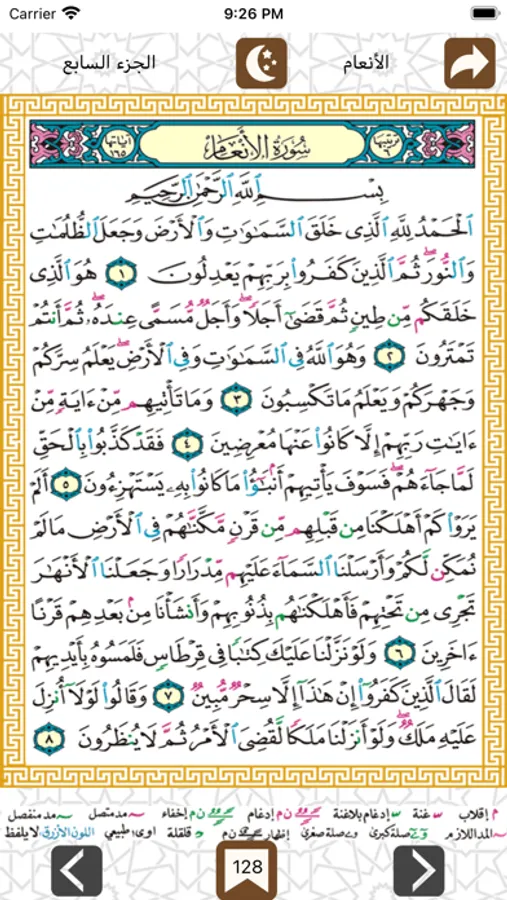 Carrier 9:26 PM
الأنعام الجزء السابع
ترتيبها ٦ سُورَةُ الأَنْعَامِ آياتها ١٦٥
بِسْمِ اللَّهِ الرَّحْمَٰنِ الرَّحِيمِ
الْحَمْدُ لِلَّهِ الَّذِي خَلَقَ السَّمَاوَاتِ وَالْأَرْضَ وَجَعَلَ الظُّلُمَاتِ
وَالنُّورَ ۖ ثُمَّ الَّذِينَ كَفَرُوا بِرَبِّهِمْ يَعْدِلُونَ ١ هُوَ الَّذِي
خَلَقَكُم مِّن طِينٍ ثُمَّ قَضَىٰ أَجَلًا ۖ وَأَجَلٌ مُّسَمًّى عِندَهُ ۖ ثُمَّ أَنتُمْ
تَمْتَرُونَ ٢ وَهُوَ اللَّهُ فِي السَّمَاوَاتِ وَفِي الْأَرْضِ ۖ يَعْلَمُ سِرَّكُمْ
وَجَهْرَكُمْ وَيَعْلَمُ مَا تَكْسِبُونَ ٣ وَمَا تَأْتِيهِم مِّنْ ءَايَةٍ مِّنْ
ءَايَاتِ رَبِّهِمْ إِلَّا كَانُوا عَنْهَا مُعْرِضِينَ ٤ فَقَدْ كَذَّبُوا بِالْحَقِّ
لَمَّا جَاءَهُمْ ۖ فَسَوْفَ يَأْتِيهِمْ أَنبَٰٓؤُا مَا كَانُوا بِهِ يَسْتَهْزِءُونَ ٥ أَلَمْ
يَرَوْا كَمْ أَهْلَكْنَا مِن قَبْلِهِم مِّن قَرْنٍ مَّكَّنَّاهُمْ فِي الْأَرْضِ مَا لَمْ
نُمَكِّن لَّكُمْ وَأَرْسَلْنَا السَّمَاءَ عَلَيْهِم مِّدْرَارًا وَجَعَلْنَا الْأَنْهَارَ
تَجْرِي مِن تَحْتِهِمْ فَأَهْلَكْنَاهُم بِذُنُوبِهِمْ وَأَنشَأْنَا مِن بَعْدِهِمْ قَرْنًا
ءَاخَرِينَ ٦ وَلَوْ نَزَّلْنَا عَلَيْكَ كِتَابًا فِي قِرْطَاسٍ فَلَمَسُوهُ بِأَيْدِيهِمْ
لَقَالَ الَّذِينَ كَفَرُوا إِنْ هَٰذَا إِلَّا سِحْرٌ مُّبِينٌ ٧ وَقَالُوا لَوْلَا أُنزِلَ
عَلَيْهِ مَلَكٌ ۖ وَلَوْ أَنزَلْنَا مَلَكًا لَّقُضِيَ الْأَمْرُ ثُمَّ لَا يُنظَرُونَ ٨
م إقلاب غنة إدغام بلاغنة ن م إدغام ن م إخفاء مد متصل مد منفصل
المد اللازم صلة كبرى صلة صغرى ن م إظهار قلقلة اوي طبيعي اللون الأزرق لا يلفظ
128